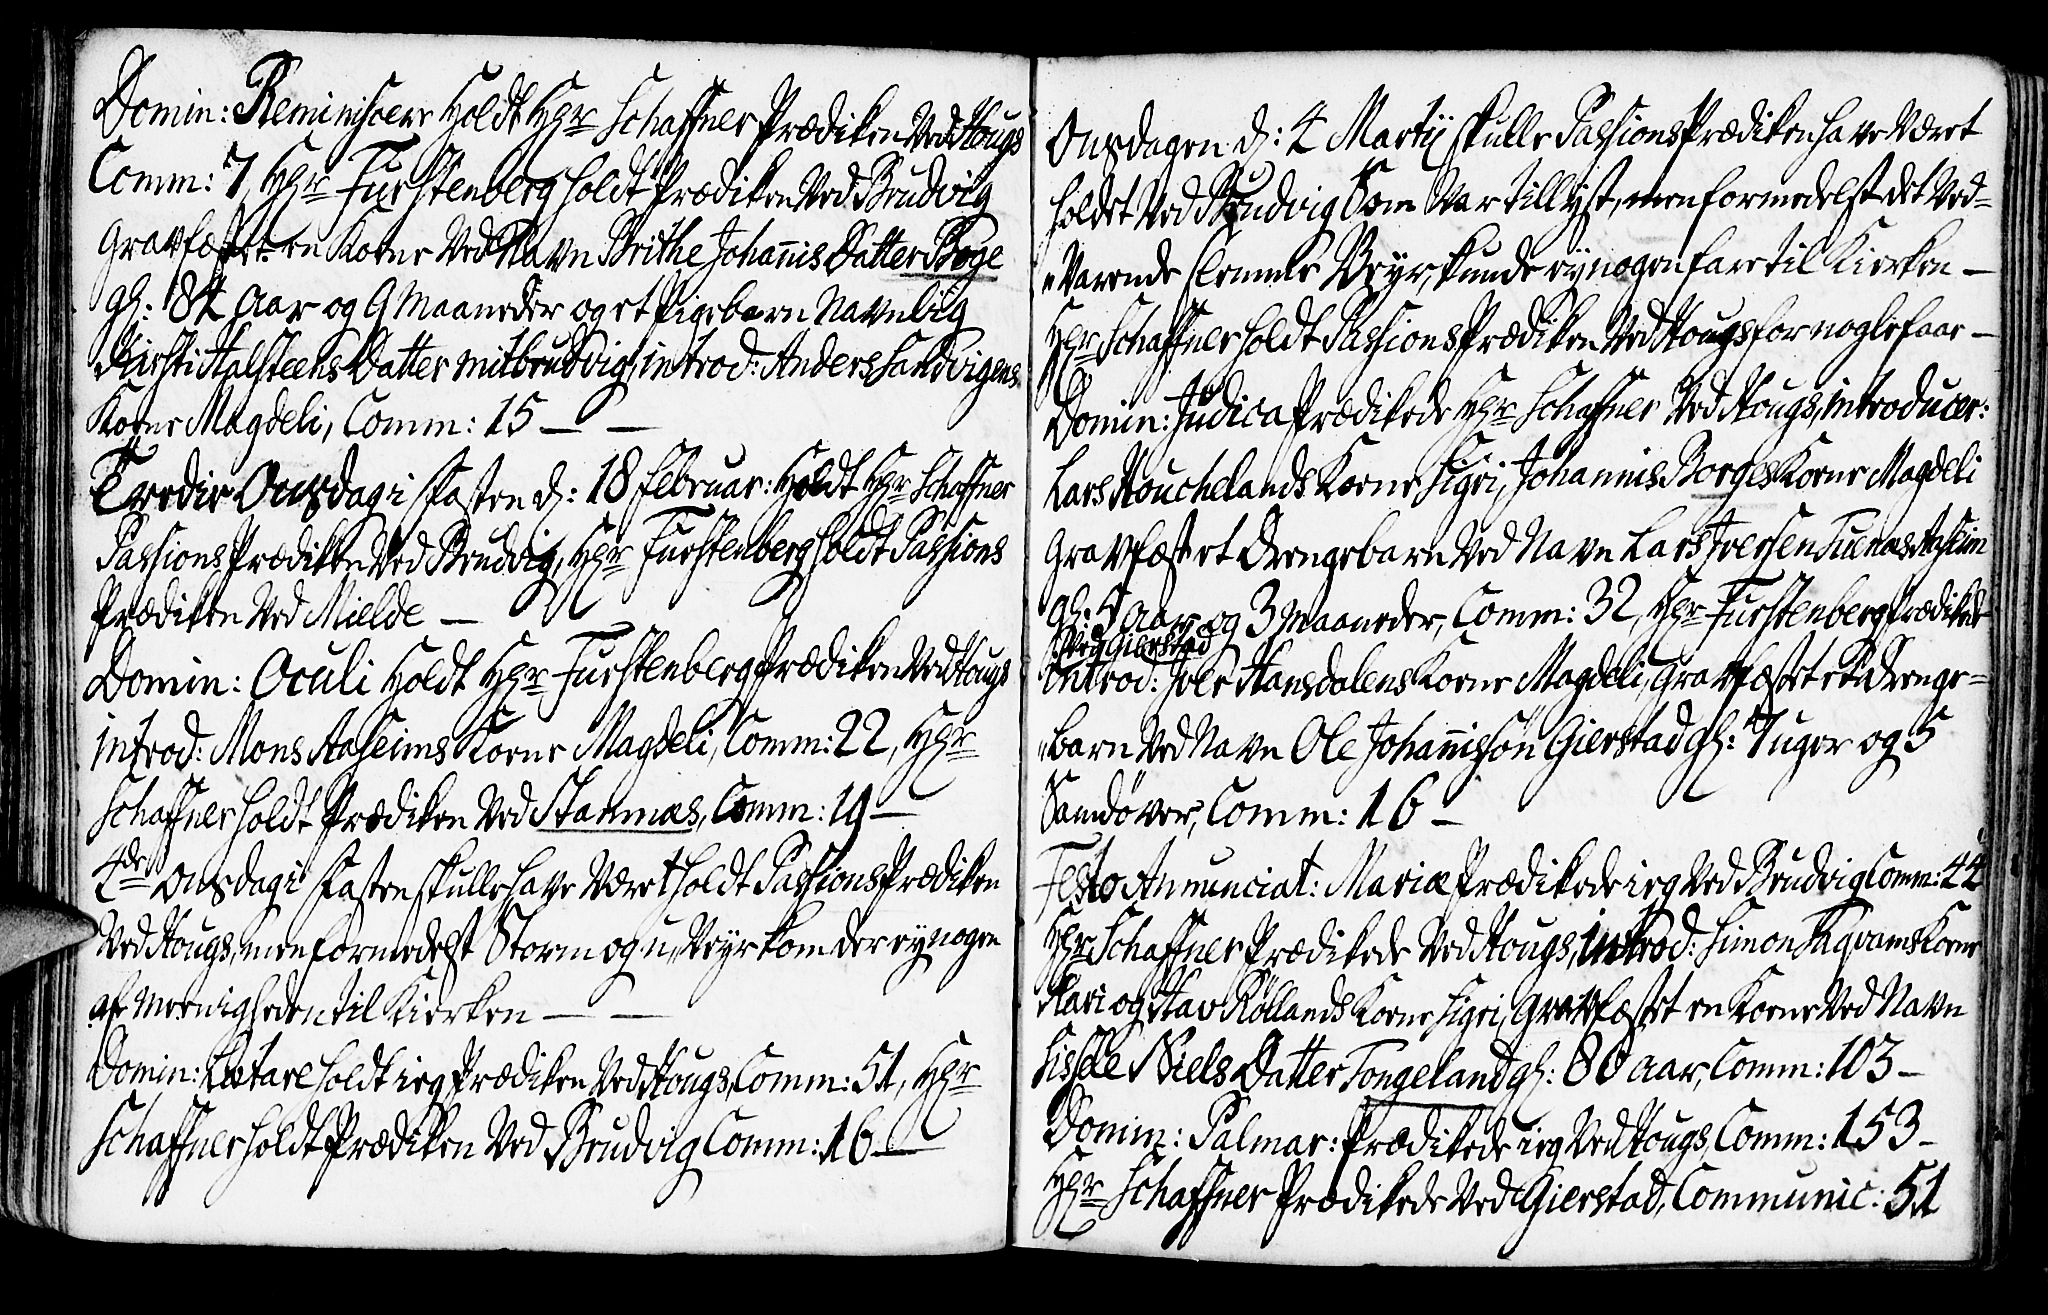 Domin: Reminiscere Holdt Hr: Schaffner Prædiken Ved Hougs
Comm: 7, Hr: Fürstenberg holdt Prædiken Ved Brudvig
Gravfæstet en Kone Ved Navn Brithe Johannis Datter Boge
gl: 84 Aar og 9 Maaneder og et Pigebarn Navnlig
Kirsti Halsteens Datter mitbrudvig, introd: Anders Sandvigens
Kone Magdeli, Comm: 15 — —
Tredie Onsdag i Fasten d: 18 Februar: Holdt Hr: Schaffner
Passions Prædiken Ved Brudvig, Hr: Fürstenberg holdt Passions
Prædiken Ved Mielde —
Domin: Oculi Holdt Hr: Fürstenberg Prædiken Ved Hougs
introd: Mons Aaseims Kone Magdeli, Comm: 22, Hr:
Schaffner holdt Prædiken Ved Stamnæs, Comm: 19 —
4de Onsdag i Fasten skulle have været holdt Passions Prædiken
Ved Hougs, men formedelst Storm og u,,Veyr kom der ey nogen
af Meenigheden til Kierken — —
Domin: Lætare holdt ieg Prædiken Ved Hougs, Comm: 51, Hr:
Schaffner holdt Prædiken Ved Brudvig Comm: 16 —
Onsdagen d: 4 Martij skulle Passions Prædiken have været
holdet Ved Brudvig Som Var tillyst, men formedelst det Ved-
,,Varende slemme Veyr, kunde ey nogen fare til Kierken —
Hr: Schaffner holdt Passions Prædiken Ved Hougs for nogle faae —
Domin: Judica Prædikede Hr: Schaffner Ved Hougs, introducer:
Lars Houchelands Kone Sigri, Johannis Borges Kone Magdeli
Gravfæstet et Drengebarn Ved Navn Lars Iversen Tuenæs Aaseim
gl: 5 Aar og 3 Maaneder, Comm: 32, Hr: Fürstenberg Prædikede
Ved Gierstad
introd: Iver Hansdalens Kone Magdeli, Gravfæstet et Drenge-
,,barn Ved Navn Ole Johannisøn Gierstad gl: 7 uger og 5
Samdøver, Comm: 16 —
Festo Annunciat: Mariæ Prædikede ieg Ved Brudvig Comm: 44
Hr: Schaffner Prædikede Ved Hougs, introd: Simon Taqvams Kone
Kari og Hav Røllands Kone Sigri, Gravfæstet en Kone Ved Navn
Sissele Niels Datter Tongeland gl: 80 Aar, Comm: 103 —
Domin: Palmar: Prædikede ieg Ved Hougs, Comm: 153 —
Hr: Schaffner Prædikede Ved Gierstad, Communic: 51